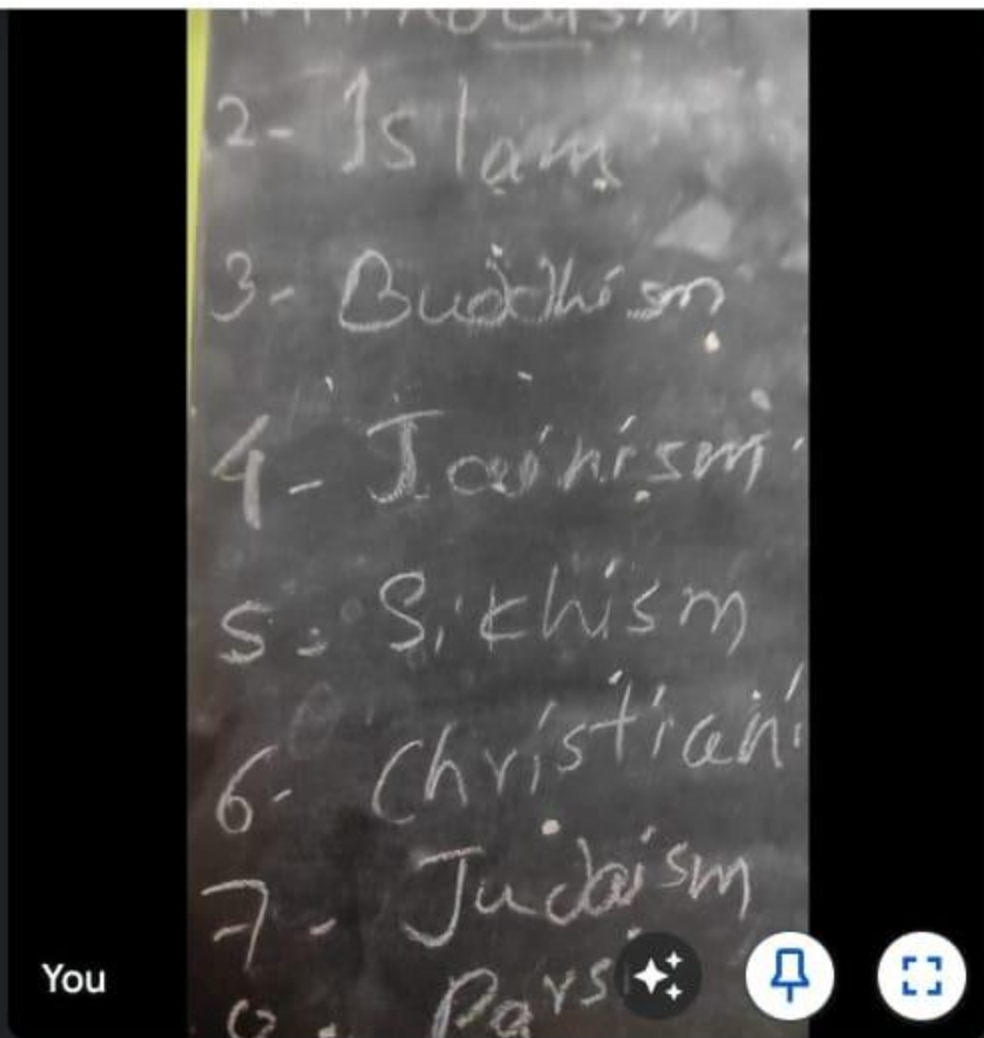 2- Islam
3- Buddhism
4- Jainism
5- Sikhism
6- Christiani
7- Judaism
You